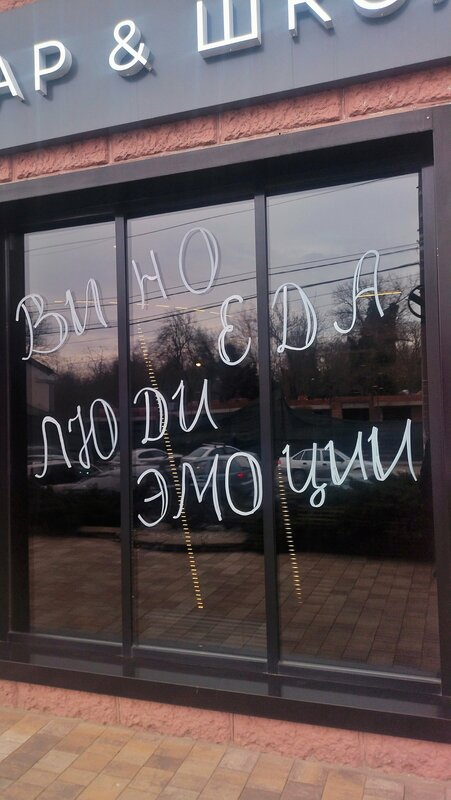 АР & ШКО
ВИНО
ЕДА
ЛЮДИ
ЭМОЦИИ